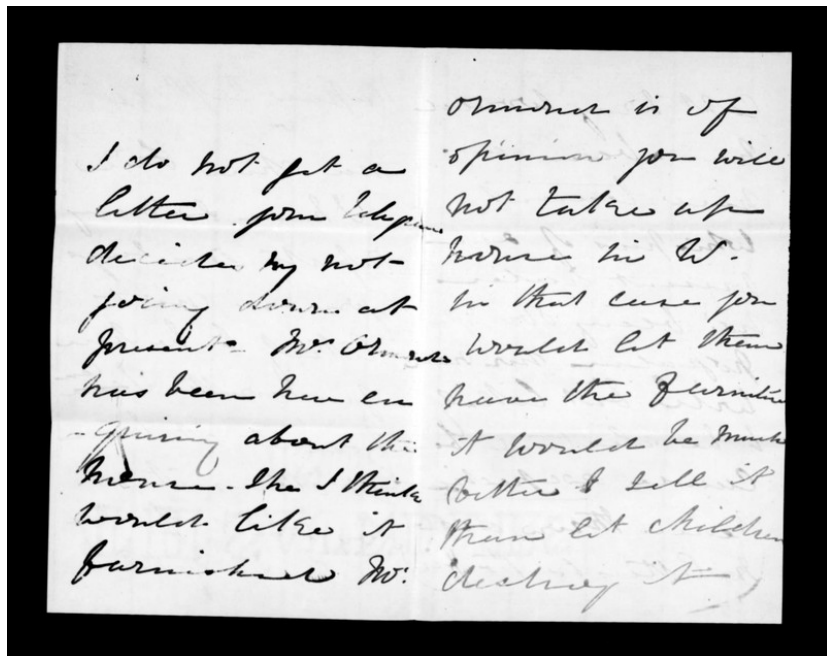 I do not get a
letter your Telegram
decides my not
going down at
present - Mrs Ormond
has been here en
-quiring about the
house - She I think
would like it
furnished Mr.
Ormond is of
opinion you will
not take up
house in W.
in that case you
would let them
have the furniture
it would be much
better I sell it
than let children
destroy it